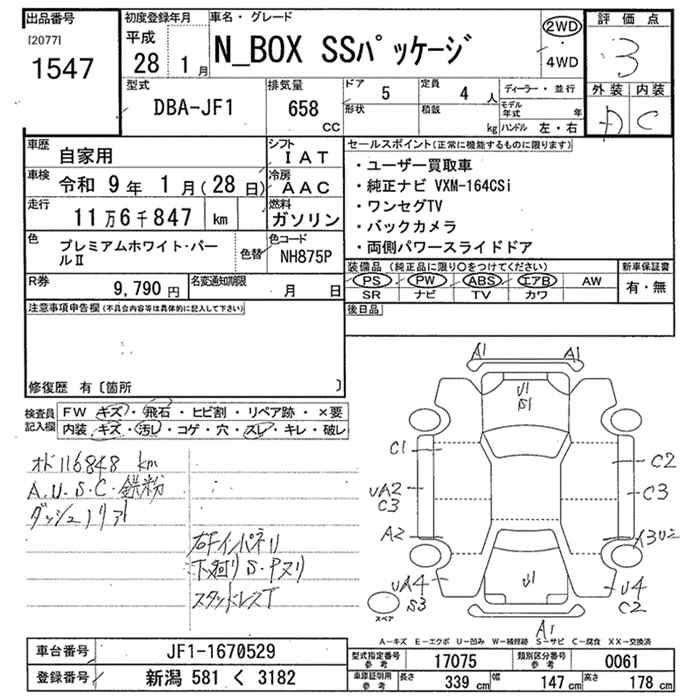 出品番号 初度登録年月 車名・グレード 評価点
[2077] 平成 N_BOX SSパッケージ 2WD 3
1547 28 1月 4WD
外装 内装
型式 排気量 ドア 5 定員 4 人 ディーラー・並行 A C
DBA-JF1 658 CC 形状 積載 kg モデル年式 年
ハンドル 左・右
車歴 自家用 シフト IAT セールスポイント(正常に機能するものに限ります)
車検 令和 9年 1月(28日) 冷房 AAC ・ユーザー買取車
走行 11万6千847 km 燃料 ガソリン ・純正ナビ VXM-164CSi
・ワンセグTV
色 プレミアムホワイト・パールⅡ 色替 色コード NH875P ・バックカメラ
・両側パワースライドドア
R券 9,790円 名変通知期限 月 日 装備品(純正品に限り○をつけてください) 新車保証書
PS PW ABS エアB AW 有・無
SR ナビ TV カワ
注意事項申告欄(不具合内容等は具体的に記入して下さい) 後日品
修復歴 有〔箇所 〕
検査員記入欄 FW キズ・飛石・ヒビ割・リペア跡・×要
内装、キズ・汚し・コゲ・穴・スレ・キレ・破レ
オド116848 km
A.U.S.C.鉄粉
右Fインパネリ
下廻りS・Pヌリ
スタッドレスT
A1 A1
U1
B1
C1 C2
UA2 C3
C3
A2 A3U2
UA4 U1 U4
S3 C2
スペア A1
A－キズ E－エクボ U－凹み W－補修跡 S－サビ C－腐食 XX－交換済
車台番号 JF1-1670529 型式指定番号 参考 17075 類別区分番号 参考 0061
登録番号 新潟 581 く 3182 車庫証明用 参考 長さ 339 cm 幅 147 cm 高さ 178 cm